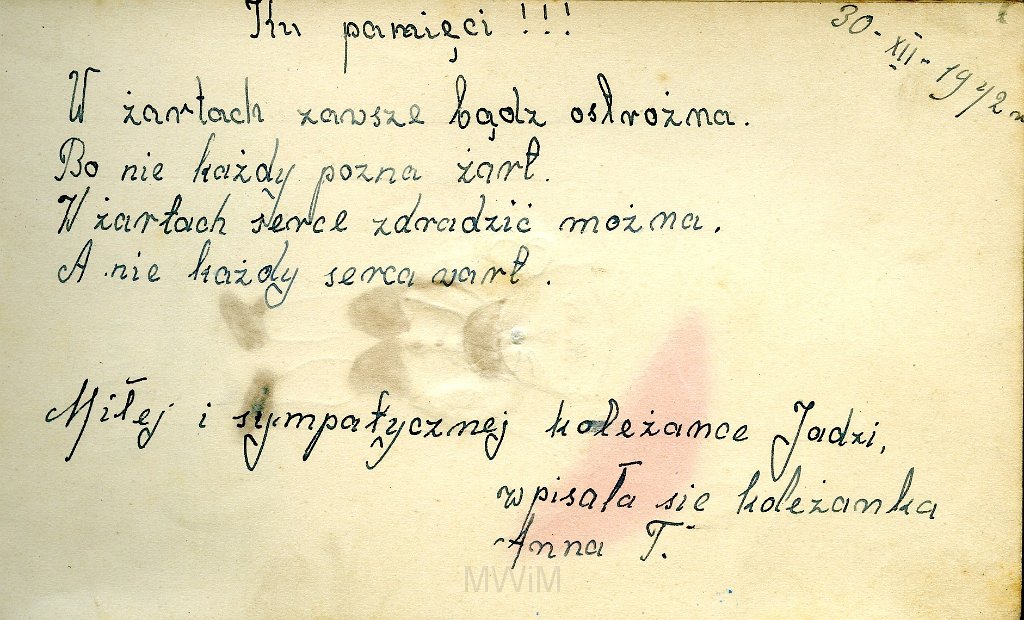 Ku pamięci !!!
30-XII-1942 r
W żartach zawsze bądz ostrożna.
Bo nie każdy pozna żart.
W żartach serce zdradzić można.
A nie każdy serca wart.
Miłej i sympatycznej koleżance Jadzi,
wpisała sie koleżanka
Anna T.
MWiM